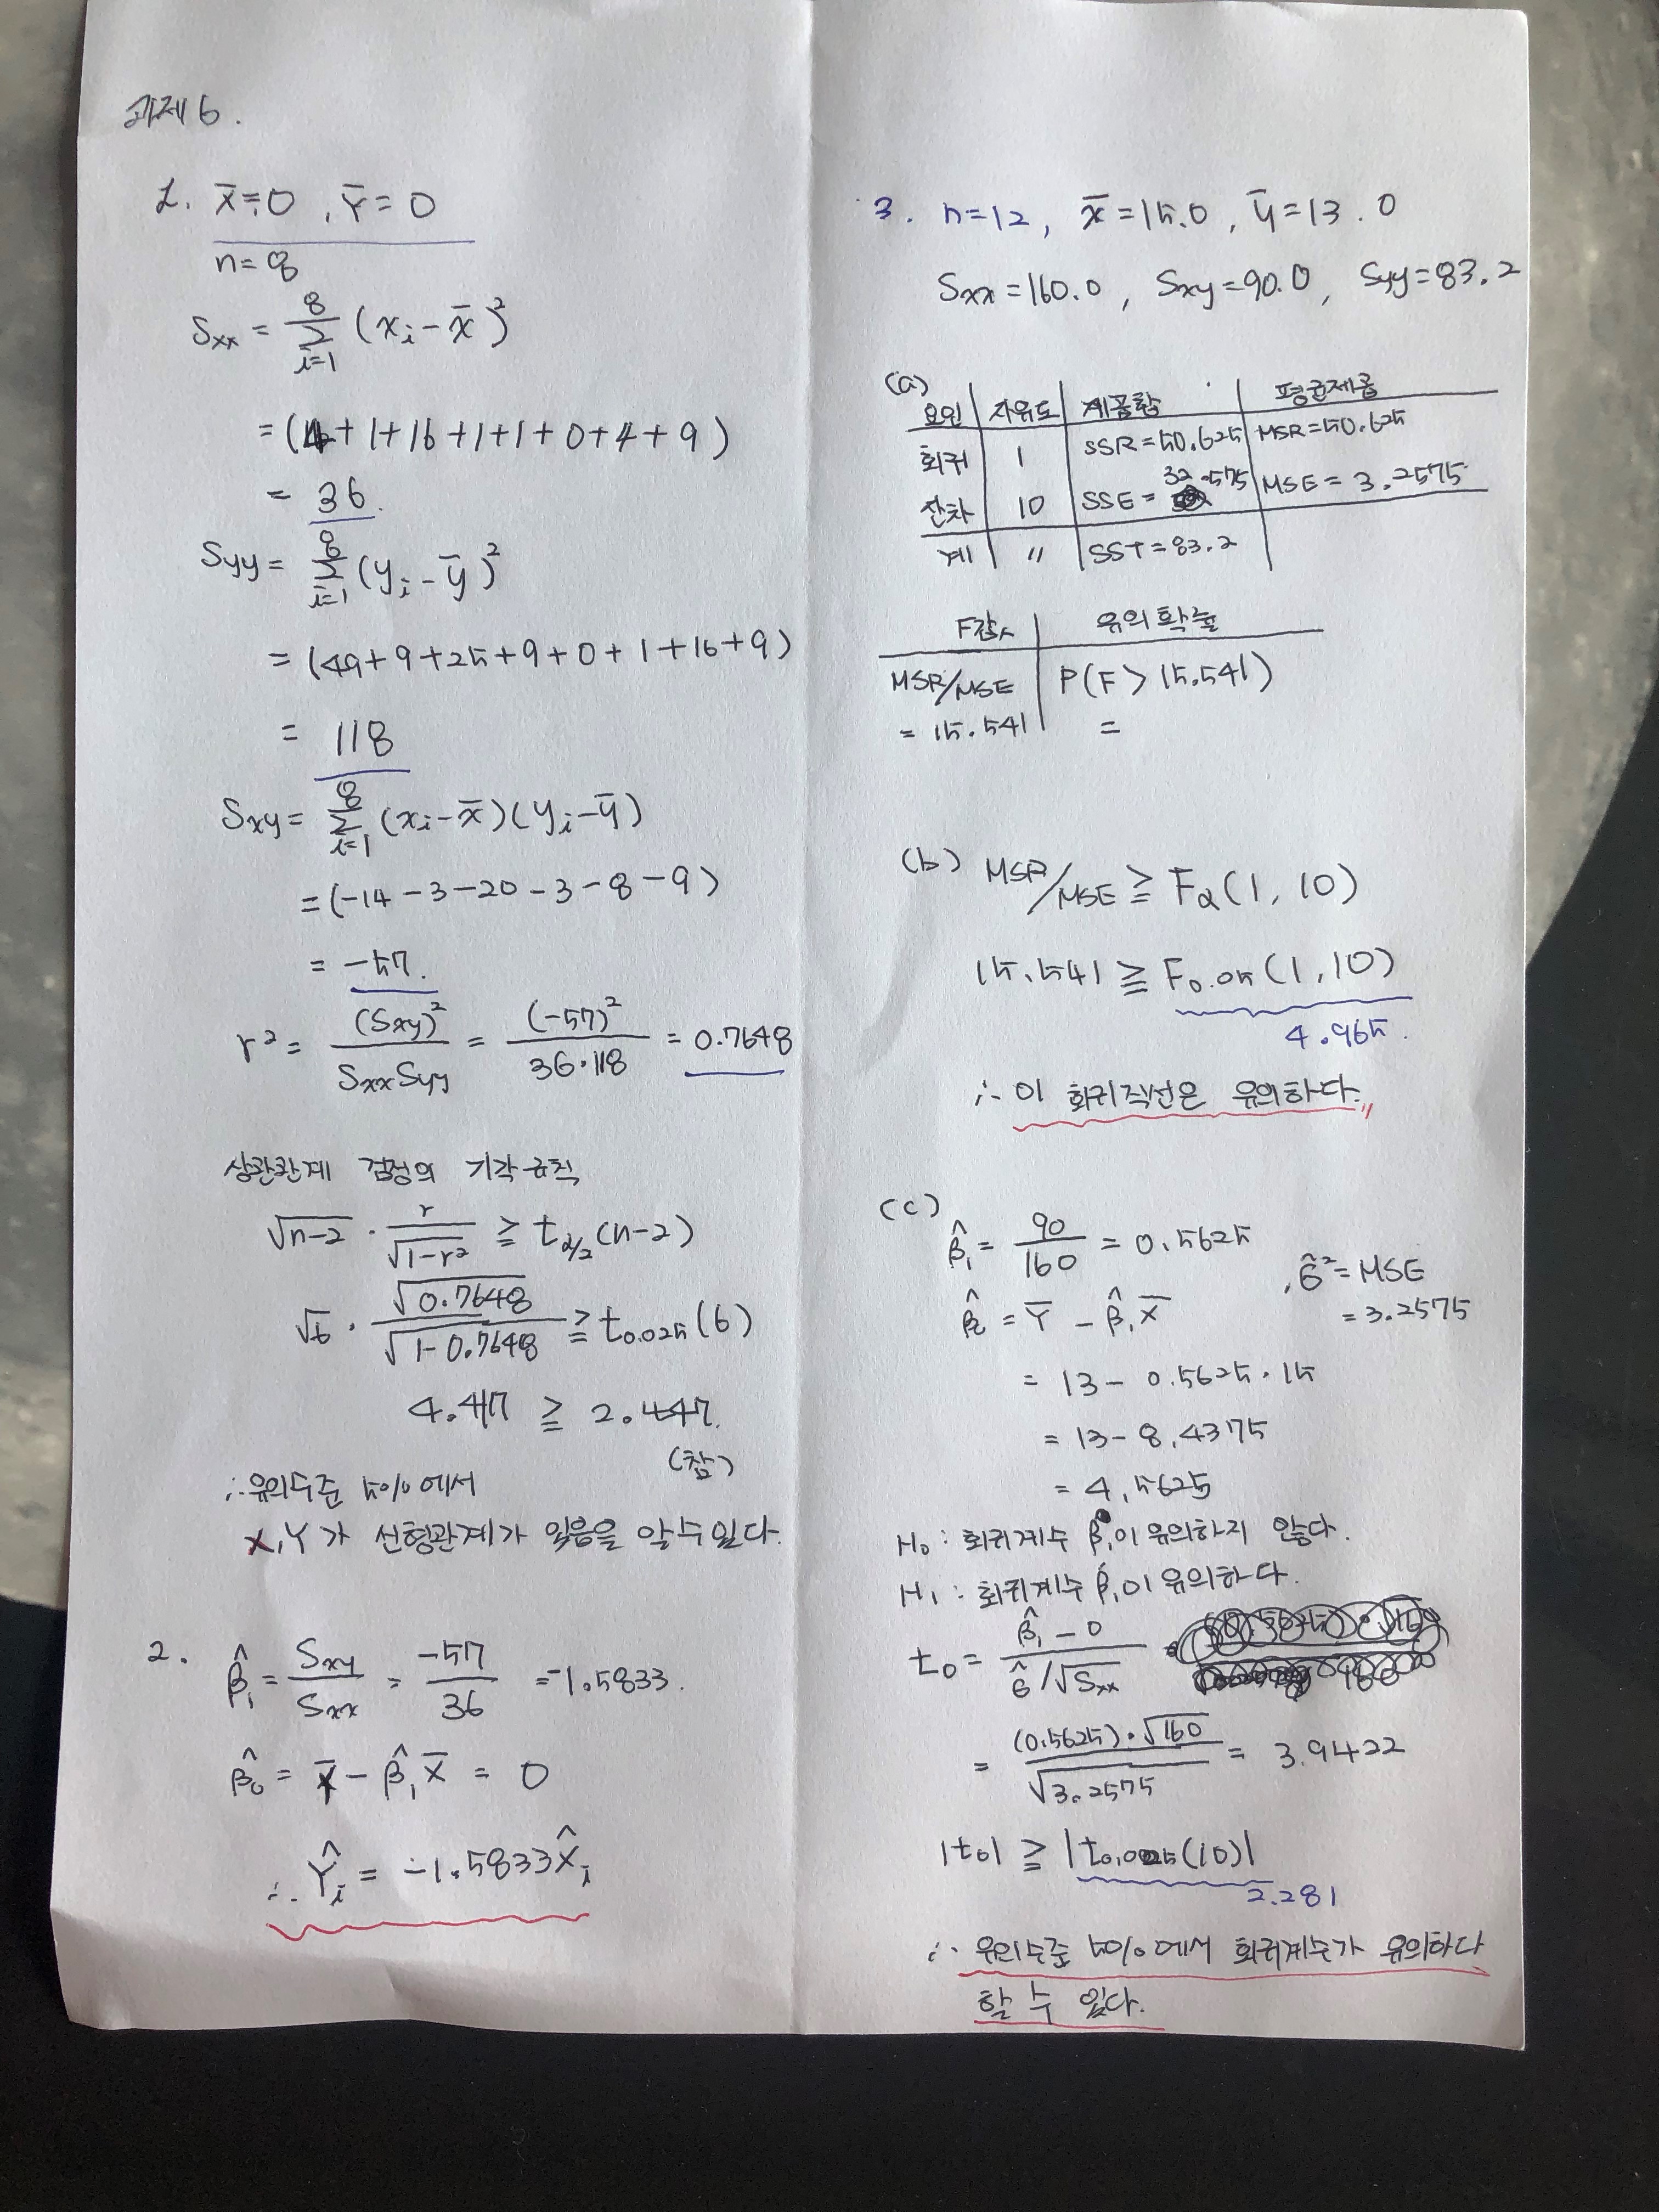 과제 6.
1. X̄=0, Ȳ=0
n=8
Sxx = Σ_{i=1}^{8} (x_i - x̄)²
= (4+1+16+1+1+0+4+9)
= 36.
Syy = Σ_{i=1}^{8} (y_i - ȳ)²
= (49+9+25+9+0+1+16+9)
= 118
Sxy = Σ_{i=1}^{8} (x_i - x̄)(y_i - ȳ)
= (-14-3-20-3-8-9)
= -57.
r² = (Sxy)² / SxxSyy = (-57)² / 36·118 = 0.7648
상관관계 검정의 기각규칙
√n-2 · r/√1-r² ≧ t_{α/2}(n-2)
√6 · √0.7648/√1-0.7648 ≧ t_{0.025}(6)
4.417 ≧ 2.447.
(참)
∴ 유의수준 5%에서
X, Y가 선형관계가 있음을 알 수 있다.
2. β̂₁ = Sxy/Sxx = -57/36 = -1.5833.
β̂₀ = Ȳ - β̂₁X̄ = 0
∴ Ŷ_i = -1.5833X̂_i
3. n=12, x̄=15.0, ȳ=13.0
Sxx=160.0, Sxy=90.0, Syy=83.2
(a)
요인 자유도 제곱합 평균제곱
회귀 1 SSR=50.625 MSR=50.625
잔차 10 SSE=32.575 MSE=3.2575
계 11 SST=83.2
F값 유의확률
MSR/MSE P(F > 15.541)
= 15.541 =
(b) MSR/MSE ≧ Fα(1, 10)
15.541 ≧ F_{0.05}(1, 10)
4.965.
∴ 이 회귀직선은 유의하다.
(c)
β̂₁ = 90/160 = 0.5625
, σ̂² = MSE
= 3.2575
β̂₀ = Ȳ - β̂₁X̄
= 13 - 0.5625·15
= 13 - 8.4375
= 4.5625
H₀ : 회귀계수 β₁이 유의하지 않다.
H₁ : 회귀계수 β₁이 유의하다.
t₀ = β̂₁ - 0 / σ̂/√Sxx
= (0.5625)·√160 / √3.2575 = 3.9422
|t₀| ≧ |t_{0.025}(10)|
2.281
∴ 유의수준 5%에서 회귀계수가 유의하다
할 수 있다.